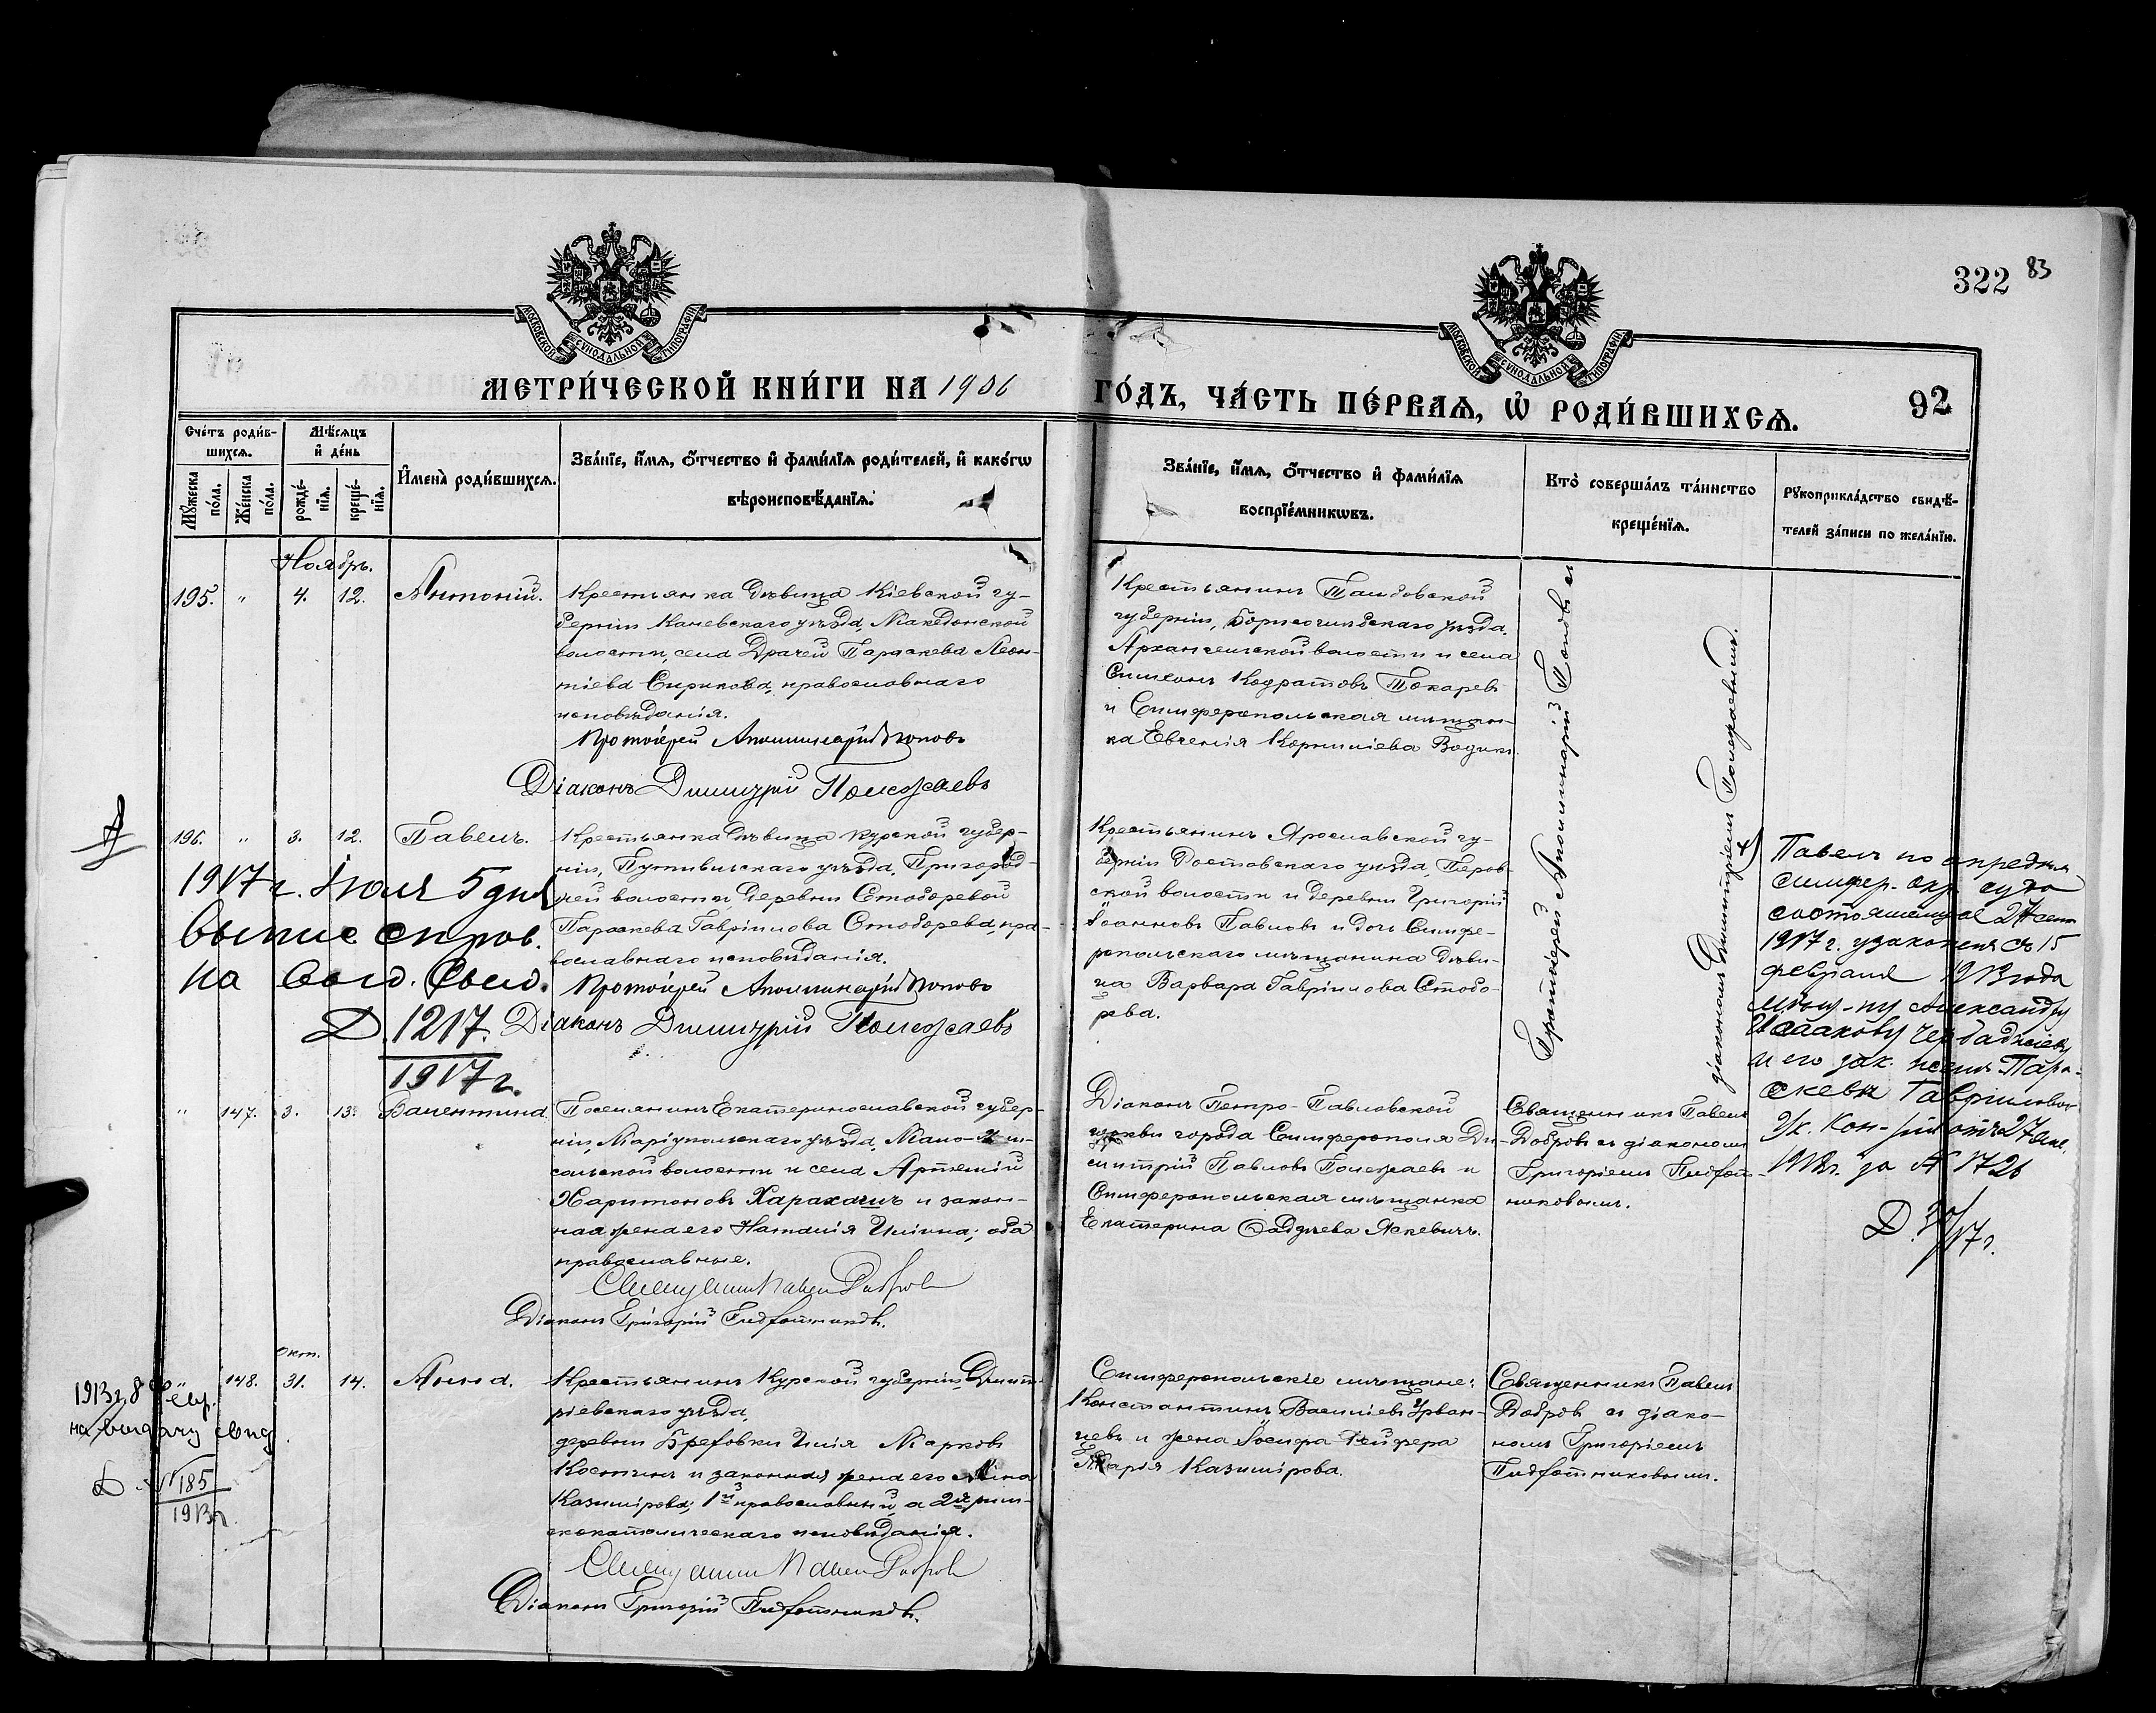 322 83
МОСКОВСКОЙ СѴНОДАЛЬНОЙ ТИПОГРАФІИ
МОСКОВСКОЙ СѴНОДАЛЬНОЙ ТИПОГРАФІИ
МЕТРИ́ЧЕСКОЙ КНИ́ГИ НА 1906 ГО́ДЪ, ЧА́СТЬ ПЕ́РВАѦ, Ѡ҆ РОДИ́ВШИХСѦ.
92
Сче́тъ роди́в-
шихсѧ.
Мꙋ́жеска по́ла.
Же́нска по́ла.
Мѣ́сѧцъ
и҆ де́нь
рожде́-
нїѧ.
креще́-
нїѧ.
И҆мена̀ роди́вшихсѧ.
Зва́нїе, и҆́мѧ, ѻ҆́тчество и҆ фами́лїѧ роди́телей, и҆ како́гѡ
вѣроисповѣ́данїѧ.
Зва́нїе, и҆́мѧ, ѻ҆́тчество и҆ фами́лїѧ
воспрїе́мникѡвъ.
Кто̀ соверша́лъ та́инство
креще́нїѧ.
Рꙋкоприкла́дство свидѣ́-
телей за́писи по жела́нїю.
Ноябрь.
195. " 4. 12. Антоній.
Крестьянка дѣвица Кіевской гу-
берніи Каневскаго уѣзда, Македонской
волости, села Драчей Параскева Леон-
тіева Сприкова, православнаго
исповѣданія.
Протоіерей Аполлинарій Поповъ
Діаконъ Димитрій Полежаевъ
Крестьянинъ Тамбовской
губерніи, Борисоглѣбскаго уѣзда,
Архангельской волости и села
Симеонъ Кодратовъ Токаревъ
и Симферопольская мѣщан-
ка Евгенія Корниліева
Протоіерей Аполлинарій Поповъ съ
діакономъ Димитріемъ Полежаевымъ.
196. " 3. 12. Павелъ.
Крестьянка дѣвица Курской губер-
ніи, Путивльскаго уѣзда, Пригород-
ней волости деревни Стодоревой
Параскева Гавріилова Стодорева, пра-
вославнаго исповѣданія.
Протоіерей Аполлинарій Поповъ
Діаконъ Димитрій Полежаевъ
1917 г. Іюля 5 дня
выпис справ.
на выд. свид.
Д. 1217.
1917 г.
Крестьянинъ Ярославской гу-
берніи Ростовскаго уѣзда, Перов-
ской волости и деревни Григорій
Іоанновъ Павловъ и дочь Симфе-
ропольскаго мѣщанина дѣви-
ца Варвара Гавріилова Стодо-
рева.
Павелъ по опредѣл.
симфер. окр. суда
состоявшемуся 27 сент
1917 г. узаконенъ съ 15
февраля 1913 года
Александру
Исаакову
и его зак. женѣ Пара-
скевѣ Гавриловой
Ук. Кон-ріи отъ 27
за № 1726
Д.
" 147. 3. 13. Валентина.
Поселянинъ Екатеринославской губер-
ніи, Маріупольскаго уѣзда, Мало-Яни-
сольской волости и села Артемій
Харитоновъ Харахашъ и закон-
ная жена его Наталія Ильина; оба
православные.
Священникъ Павелъ Добровъ
Діаконъ Григорій
Діаконъ Петро-Павловской
церкви города Симферополя Ди-
митрій Павловъ Полежаевъ и
Симферопольская мѣщанка
Екатерина Фаддѣева Яскевичъ.
Священникъ Павелъ
Добровъ съ діакономъ
Григоріемъ
Окт.
" 148. 31. 14. Анна.
Крестьянинъ Курской губерніи, Дмит-
ріевскаго уѣзда,
деревни Бреховки Илія Марковъ
Костинъ и законная жена его Анна
Казимірова; 1й православный, а 2я рим-
скокатолическаго исповѣданія.
Священникъ Павелъ Добровъ
Діаконъ Григорій
1913 г. 8 Февр.
на выдачу свид
Д № 185
1913 г.
Симферопольскіе мѣщане:
Константинъ Василіевъ Урван-
цевъ и жена Іосифа
Марія Казимірова.
Священникъ Павелъ
Добровъ съ діако-
номъ Григоріемъ